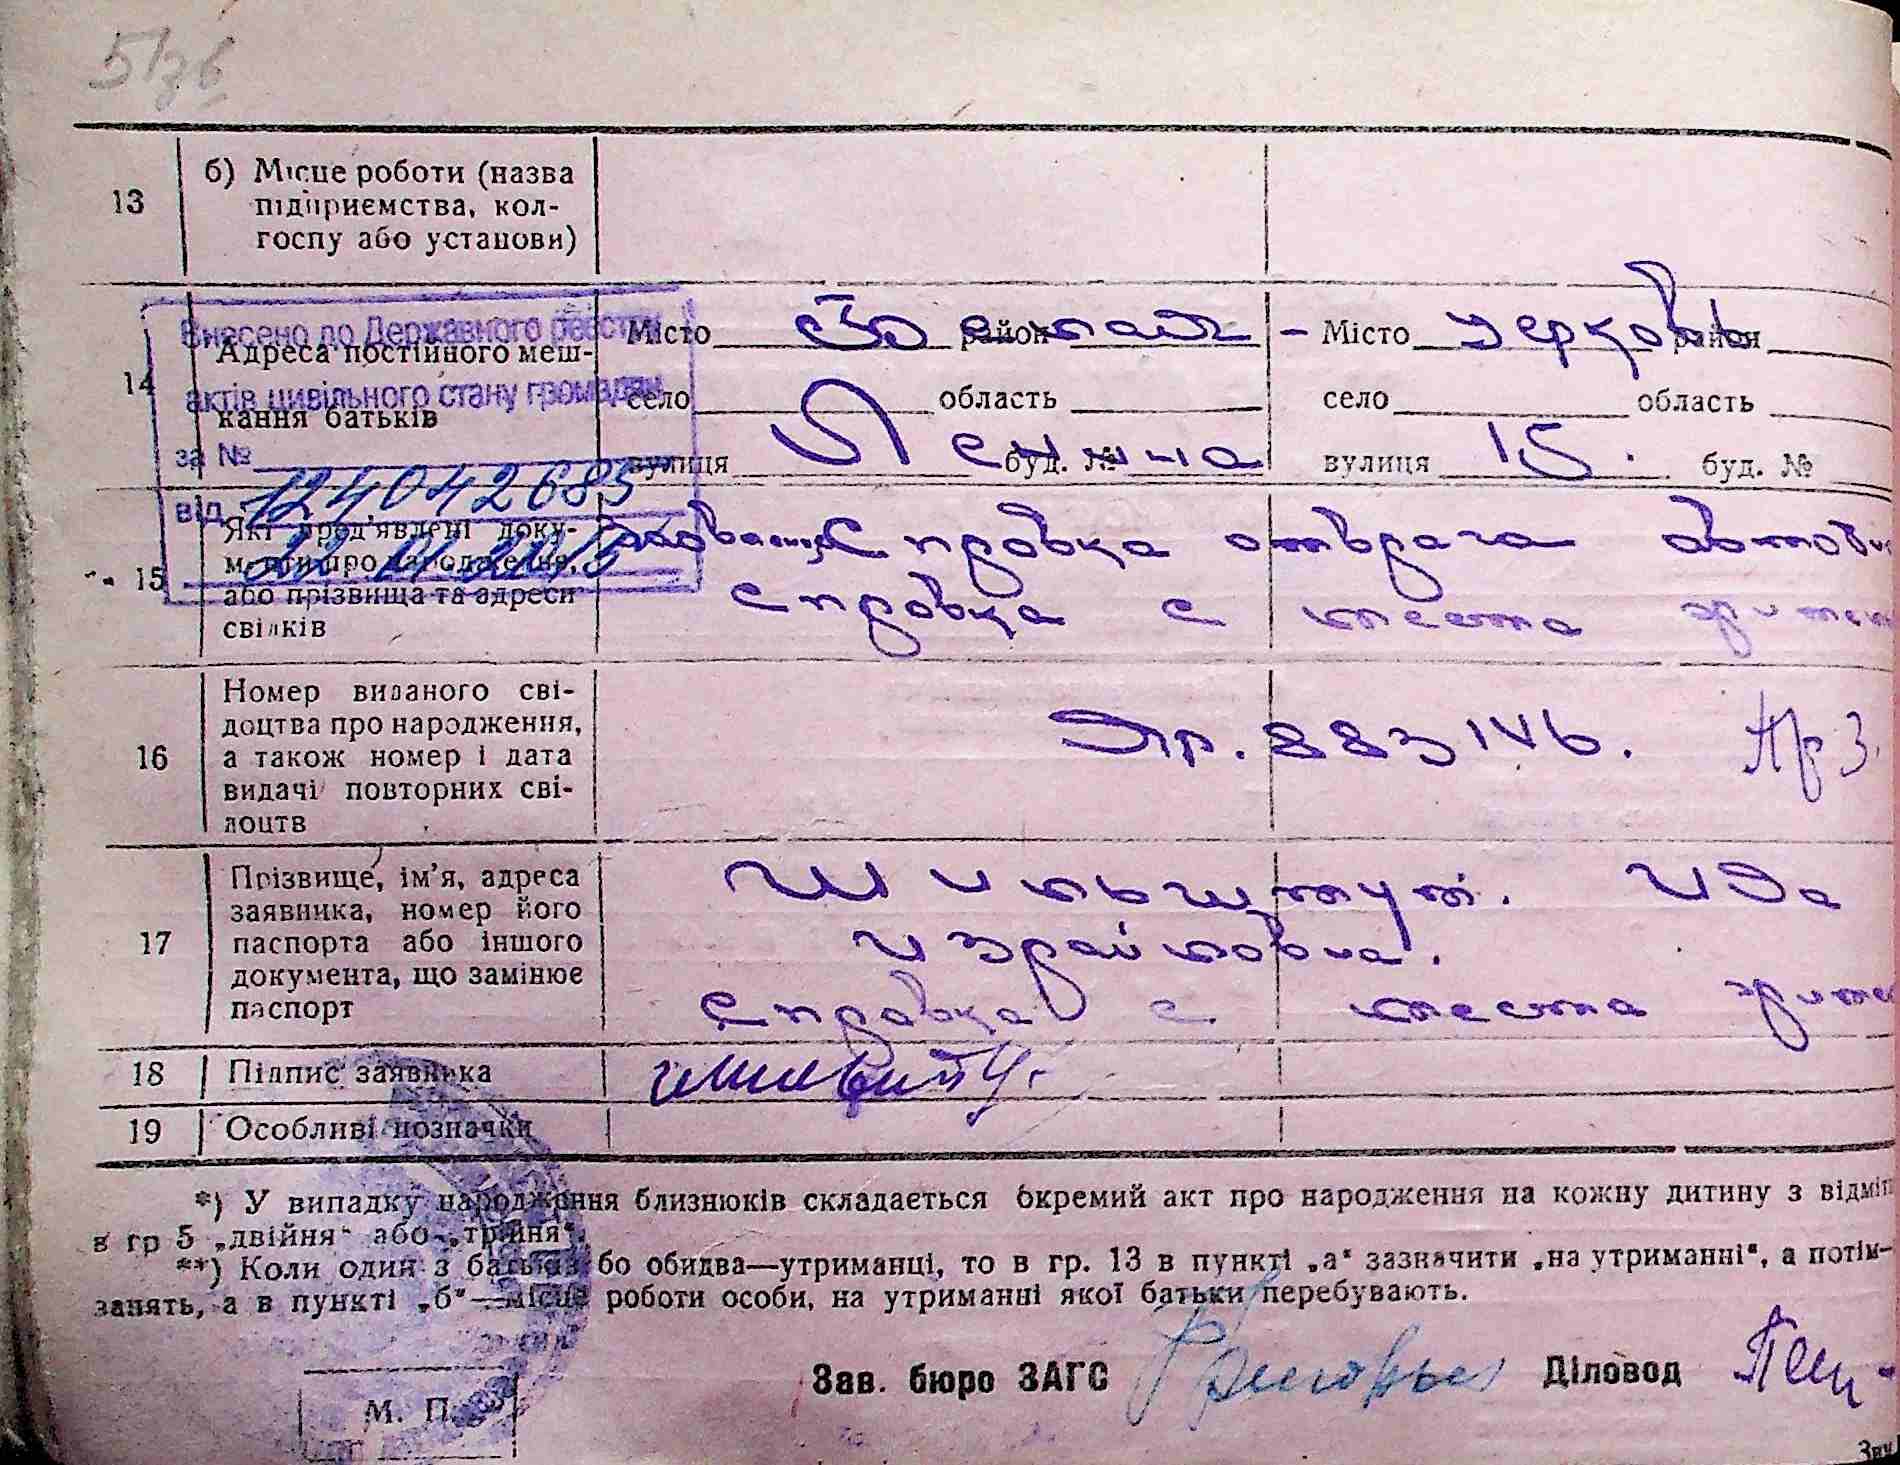 13
б) Місце роботи (назва
підприємства, кол-
госпу або установи)
Внесено до Державного реєстру
актів цивільного стану громадян
за № 124042683
від 22 01 2015
14
Адреса постійного меш-
кання батьків
Місто район - Місто Церковь район
село область село область
вулиця Ленина буд. № вулиця 15. буд. №
15
Які пред'явлені доку-
менти про народження,
або прізвища та адреси
свідків
Справка от врача
Справка с места
16
Номер виданого сві-
доцтва про народження,
а також номер і дата
видачі повторних сві-
доцтв
883146.
17
Прізвище, ім'я, адреса
заявника, номер його
паспорта або іншого
документа, що замінює
паспорт
Ида
Израйловна.
Справка с места
18 Підпис заявника
19 Особливі позначки
*) У випадку народження близнюків складається окремий акт про народження на кожну дитину з відміт
в гр 5 „двійня" або „трійня".
**) Коли один з батьків або обидва—утриманці, то в гр. 13 в пункті „а" зазначити „на утриманні", а потім—
занять, а в пункті „б"—місце роботи особи, на утриманні якої батьки перебувають.
Зав. бюро ЗАГС Діловод
М. П.